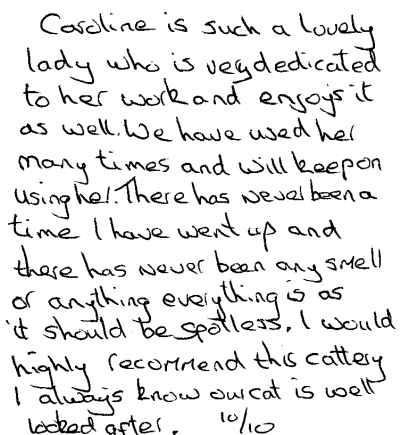 Caroline is such a lovely
lady who is very dedicated
to her work and enjoys it
as well. We have used her
many times and will keep on
using her. There has never been a
time I have went up and
there has never been any smell
or anything everything is as
it should be spotless. I would
highly recommend this cattery
I always know our cat is well
looked after. 10/10